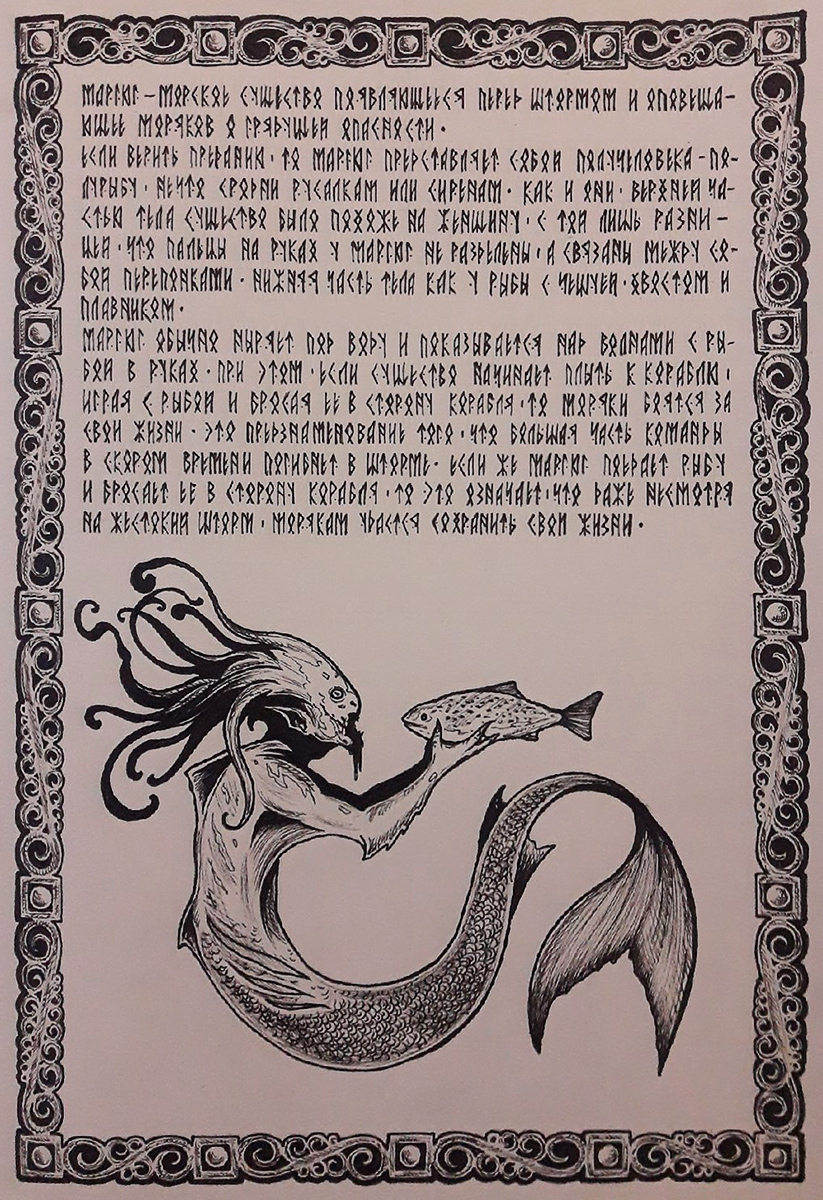 МАРГЮГ – МОРСКОЕ СУЩЕСТВО ПОЯВЛЯЮЩЕЕСЯ ПЕРЕД ШТОРМОМ И ОПОВЕЩА–
ЮЩЕЕ МОРЯКОВ О ГРЯДУЩЕЙ ОПАСНОСТИ ·
ЕСЛИ ВЕРИТЬ ПРЕДАНИЮ · ТО МАРГЮГ ПРЕДСТАВЛЯЕТ СОБОЙ ПОЛУЧЕЛОВЕКА - ПО-
ЛУРЫБУ · НЕЧТО СРОДНИ РУСАЛКАМ ИЛИ СИРЕНАМ · КАК И ОНИ · ВЕРХНЕЙ ЧА-
СТЬЮ ТЕЛА СУЩЕСТВО БЫЛО ПОХОЖЕ НА ЖЕНЩИНУ · С ТОЙ ЛИШЬ РАЗНИ –
ЦЕЙ · ЧТО ПАЛЬЦЫ НА РУКАХ У МАРГЮГ НЕ РАЗДЕЛЕНЫ · А СВЯЗАНЫ МЕЖДУ СО-
БОЙ ПЕРЕПОНКАМИ · НИЖНЯЯ ЧАСТЬ ТЕЛА КАК У РЫБЫ С ЧЕШУЕЙ · ХВОСТОМ И
ПЛАВНИКОМ ·
МАРГЮГ ОБЫЧНО НЫРЯЕТ ПОД ВОДУ И ПОКАЗЫВАЕТСЯ НАД ВОЛНАМИ С РЫ-
БОЙ В РУКАХ · ПРИ ЭТОМ · ЕСЛИ СУЩЕСТВО НАЧИНАЕТ ПЛЫТЬ К КОРАБЛЮ ·
ИГРАЯ С РЫБОЙ И БРОСАЯ ЕЕ В СТОРОНУ КОРАБЛЯ · ТО МОРЯКИ БОЯТСЯ ЗА
СВОИ ЖИЗНИ · ЭТО ПРЕДЗНАМЕНОВАНИЕ ТОГО · ЧТО БОЛЬШАЯ ЧАСТЬ КОМАНДЫ
В СКОРОМ ВРЕМЕНИ ПОГИБНЕТ В ШТОРМЕ · ЕСЛИ ЖЕ МАРГЮГ ПОЕДАЕТ РЫБУ
И БРОСАЕТ ЕЕ В СТОРОНУ КОРАБЛЯ · ТО ЭТО ОЗНАЧАЕТ · ЧТО ДАЖЕ НЕСМОТРЯ
НА ЖЕСТОКИЙ ШТОРМ · МОРЯКАМ УДАСТСЯ СОХРАНИТЬ СВОИ ЖИЗНИ ·